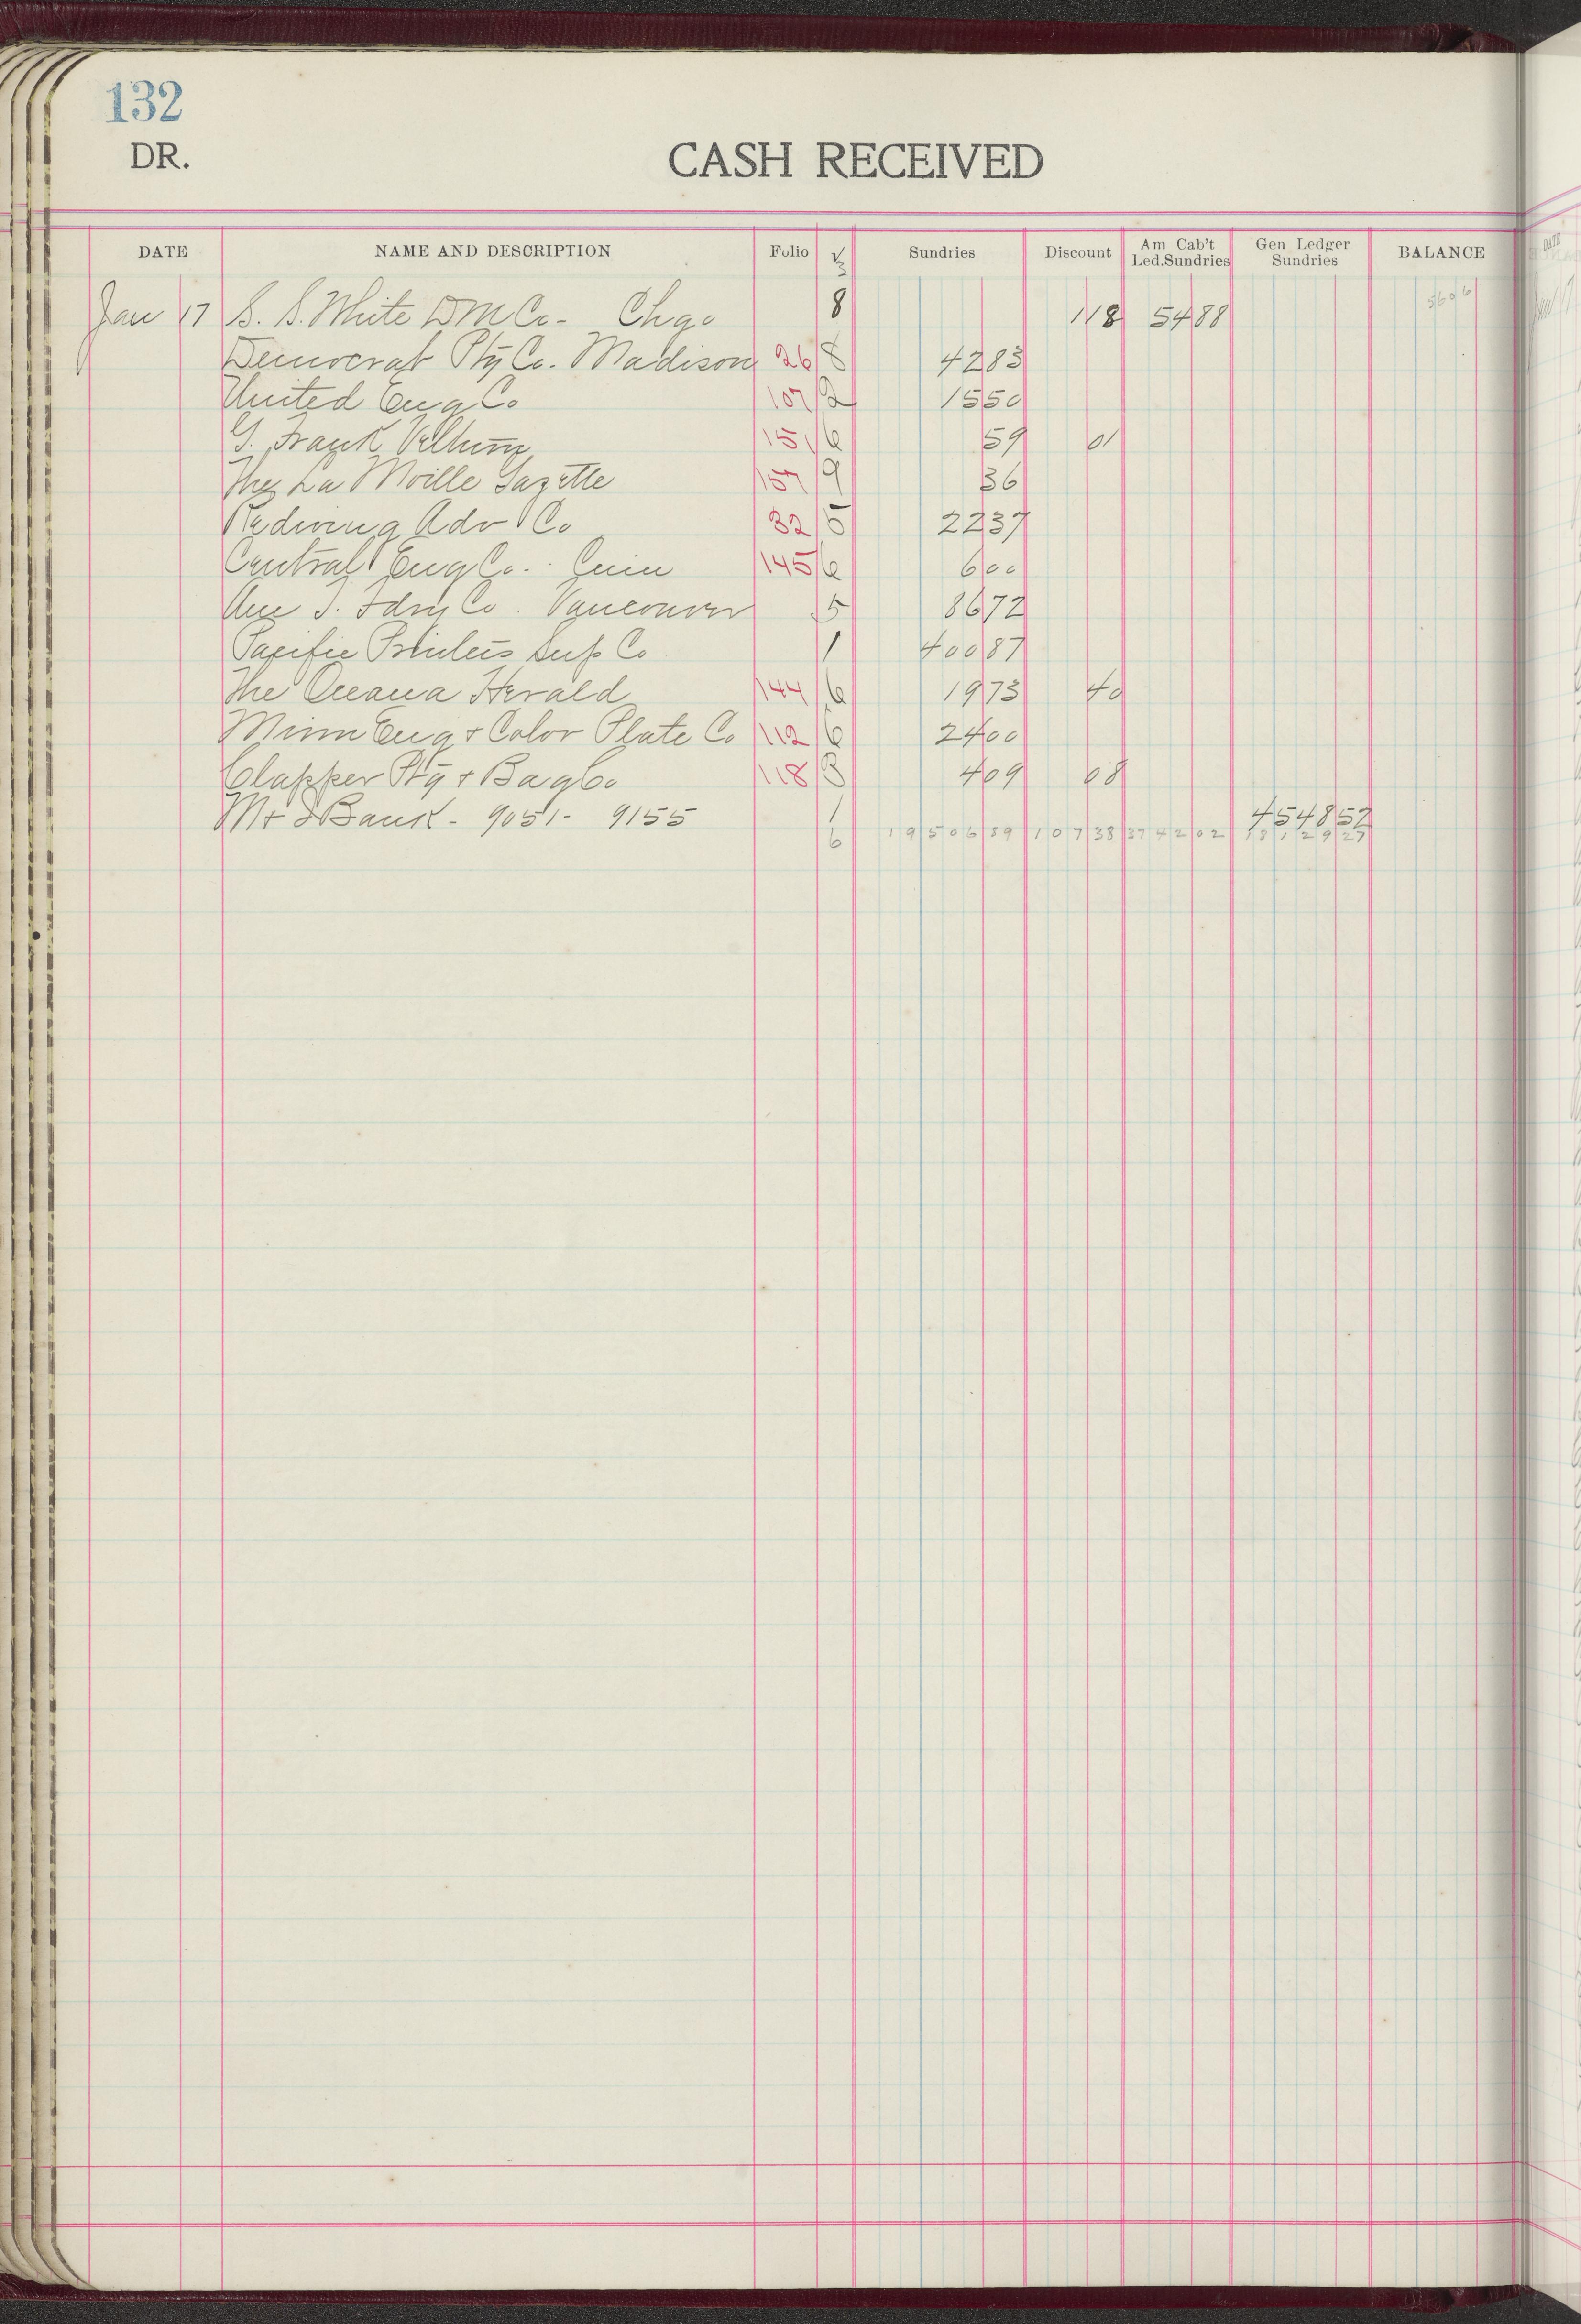 132
DR.
CASH RECEIVED
DATE NAME AND DESCRIPTION Folio √ Sundries Discount Am Cab't Led.Sundries Gen Ledger Sundries BALANCE
3
5606
Jan 17 S. S. White D M Co - Chgo 8 1 18 54 88
Democrat Ptg Co. Madison 26 8 42 83
United Eng Co 107 2 15 50
G. Frank 151 6 59 01
The La Moille Gazette 157 9 36
Adv Co 32 5 22 37
Central Eng Co. Cinn 145 6 6 00
Am T. Fdry Co. Vancouver 5 86 72
Pacific Printers Sup Co 1 400 87
The Oceana Herald 144 6 19 73 40
Minn Eng & Color Plate Co 112 6 24 00
Clapper Ptg & Bag Co 118 3 4 09 08
M & I Bank - 9051 - 9155 1 4548 52
6 19506 89 107 38 3742 02 18129 27